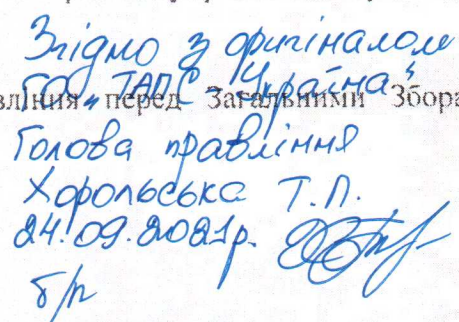 Згідно з оригіналом
ГО „ТАПС - Україна“
вління перед Загальними Збора
Голова правління
Хорольська Т.П.
24.09.2021р.
б/п